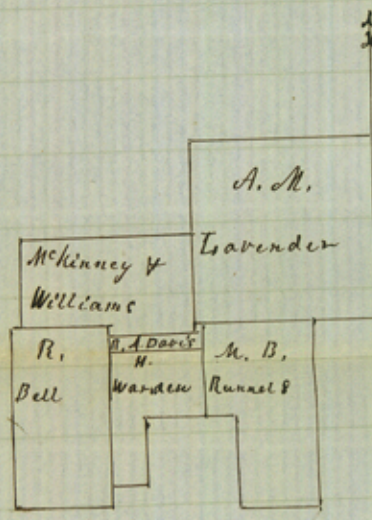 A. M.
Lavender
McKinney &
Williams
R. A Davis
R.
Bell
H.
Warden
M. B.
Runnels